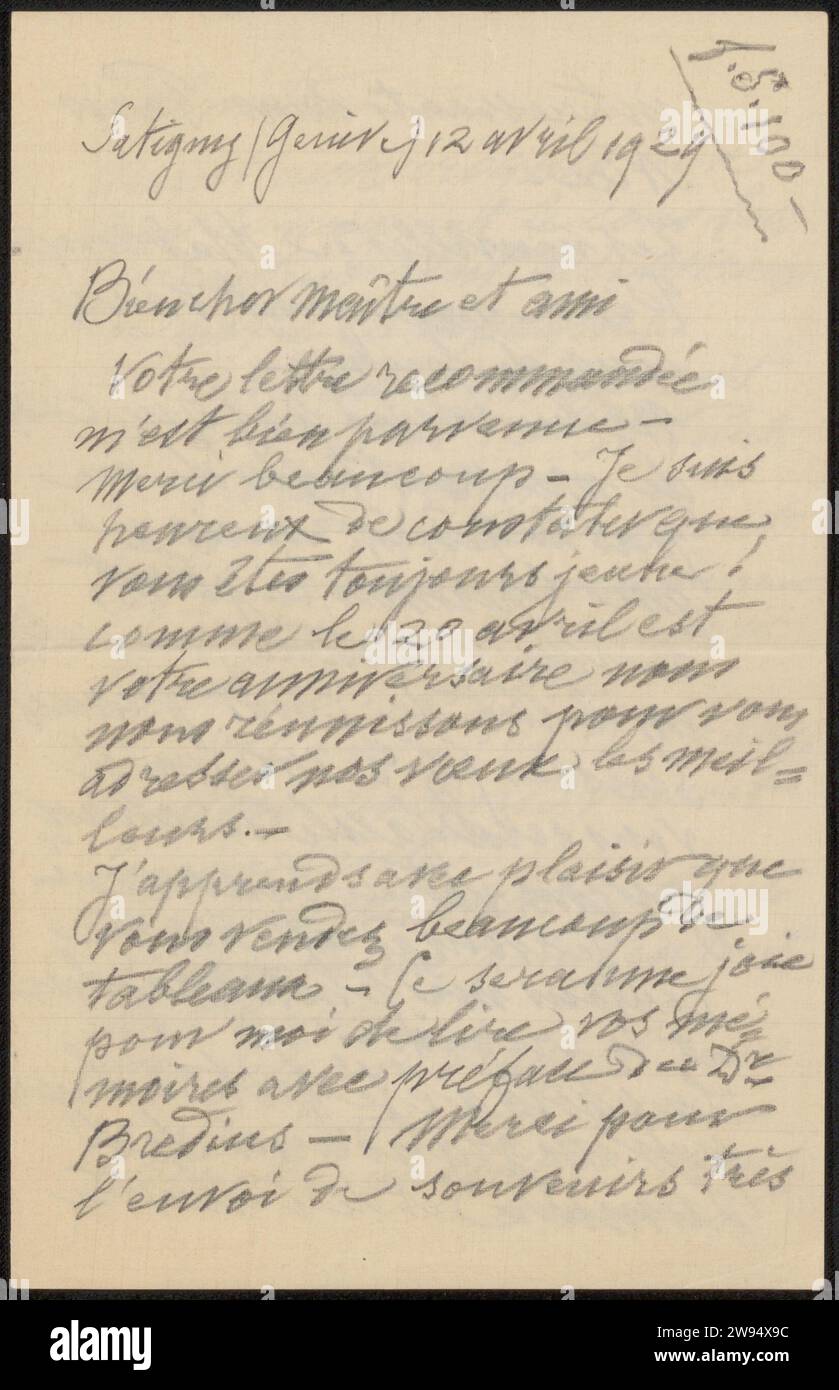 f. 5.100-
Satigny (Genève) 12 avril 1929
Bien cher maître et ami
Votre lettre recommandée
m'est bien parvenue -
Merci beaucoup - Je suis
heureux de constater que
vous êtes toujours jeune !
comme le 20 avril est
votre anniversaire nous
nous réunissons pour vous
adresser nos vœux les meil=
leurs. -
J'apprends avec plaisir que
vous vendez beaucoup de
tableaux - Ce sera une joie
pour moi de lire vos mé=
moires avec préface du Dr
Bredius - Merci pour
l'envoi de souvenirs très
alamy
Image ID: 2W94X9C
www.alamy.com